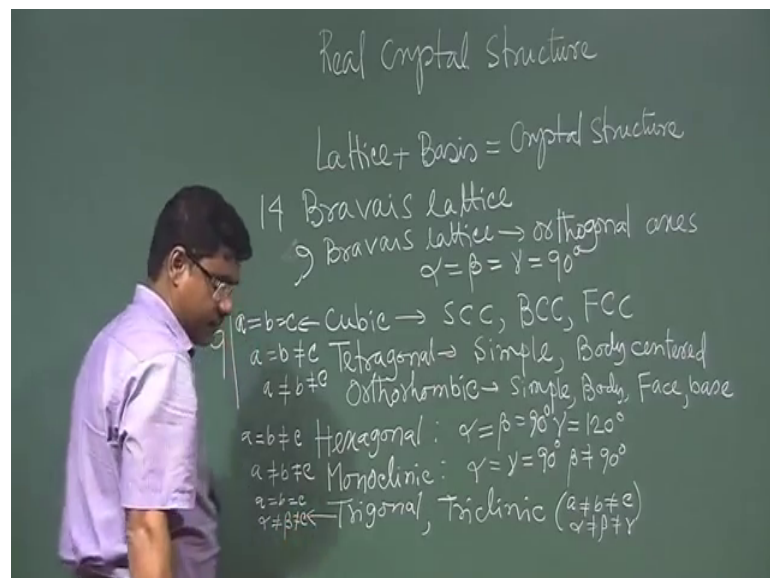 Real Crystal Structure
Lattice + Basis = Crystal Structure
14 Bravais lattice
9 Bravais lattice → orthogonal axes
α = β = γ = 90°
9 a = b = c ← Cubic → SCC, BCC, FCC
a = b ≠ c Tetragonal → Simple, Body centered
a ≠ b ≠ c Orthorhombic → Simple, Body, Face, base
a = b ≠ c Hexagonal : α = β = 90° γ = 120°
a ≠ b ≠ c Monoclinic : α = γ = 90° β ≠ 90°
a = b = c
α ≠ β ≠ c ← Trigonal, Triclinic (a ≠ b ≠ c
α ≠ β ≠ γ)